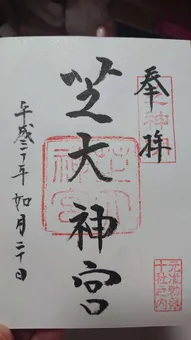 奉拝
芝大神宮
平成二十年 如月二十日
元准勅祭
十社之内